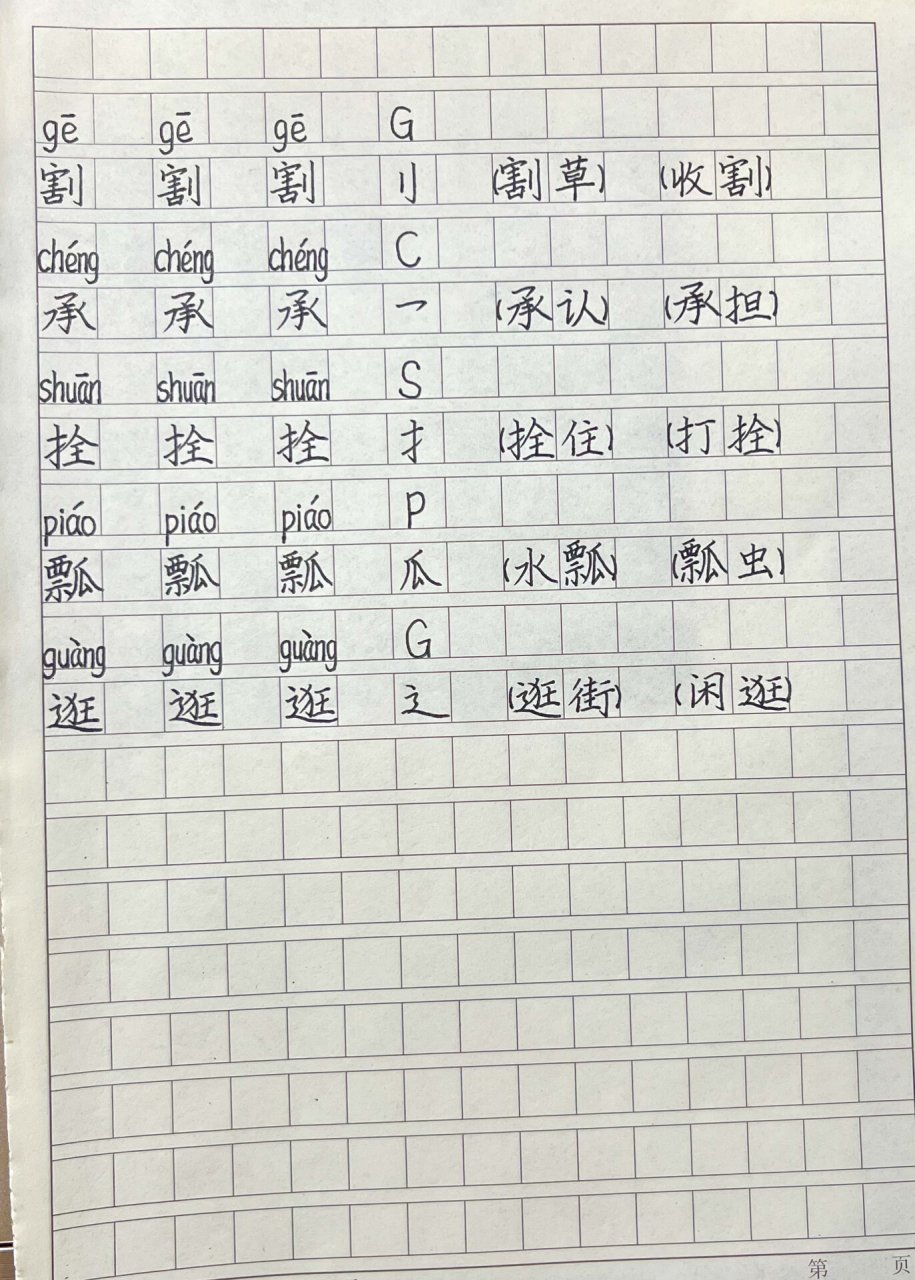 gē gē gē G
割 割 割 刂 (割草) (收割)
chéng chéng chéng C
承 承 承 乛 (承认) (承担)
shuān shuān shuān S
拴 拴 拴 扌 (拴住) (打拴)
piáo piáo piáo P
瓢 瓢 瓢 瓜 (水瓢) (瓢虫)
guàng guàng guàng G
逛 逛 逛 辶 (逛街) (闲逛)
第 页